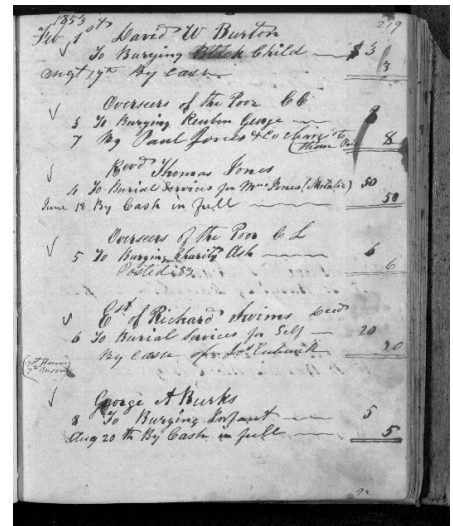 1853 219
Feb 1st David W Burton
To Burying Black Child $3
Augt 17th By Cash 3
Overseers of the Poor CC
3 To Burying Reuben George 8
7 By Paul Jones & Co 8
Revd Thomas Jones
4 To Burial Services for Mrs Jones (Metalic) 50
June 18 By Cash in full 50
Overseers of the Poor C L
5 To Burying Charity Ash 6
Posted 83 6
Est of Richard Ivins Decd
6 To Burial Services for Self 20
By Cash of Jos Eubank 20
George A Burks
8 To Burying Infant 5
Aug 20th By Cash in full 5